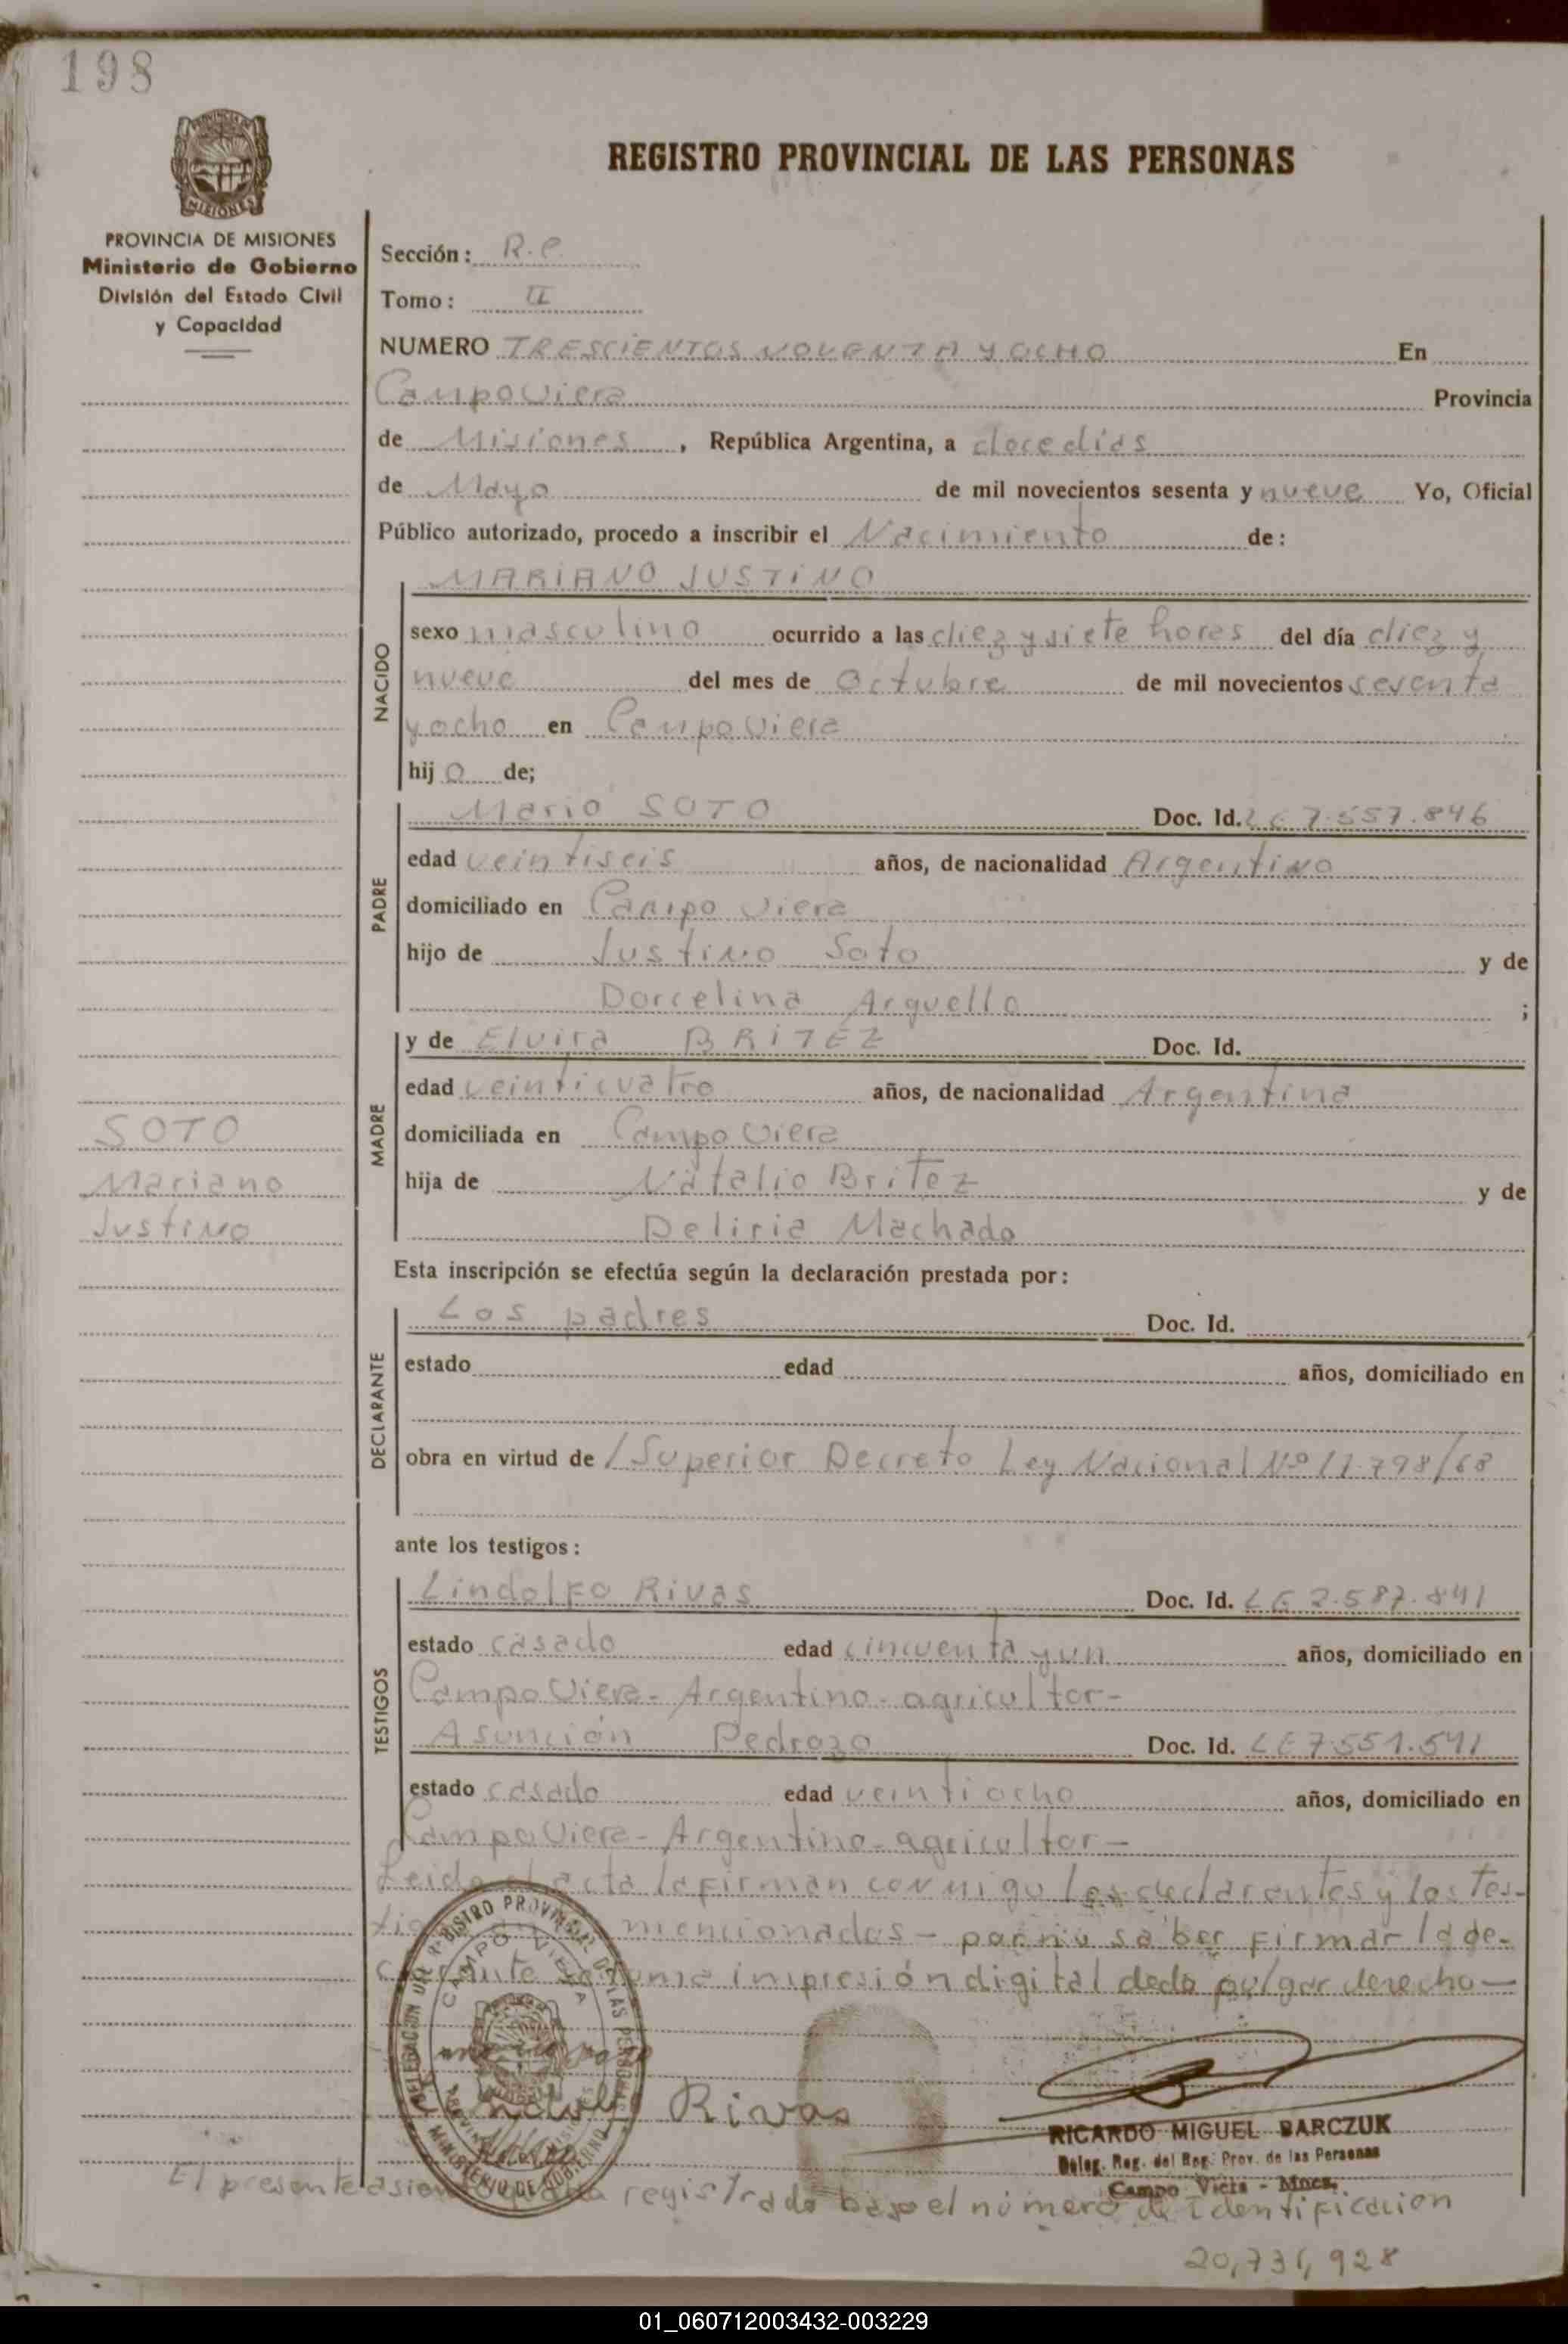 198
PROVINCIA DE MISIONES
MISIONES
PROVINCIA DE MISIONES
Ministerio de Gobierno
División del Estado Civil
y Capacidad
REGISTRO PROVINCIAL DE LAS PERSONAS
Sección: R.C.
Tomo: II
NUMERO TRESCIENTOS NOVENTA Y OCHO En
Campo Viera Provincia
de Misiones, República Argentina, a doce dias
de Mayo de mil novecientos sesenta y nueve Yo, Oficial
Público autorizado, procedo a inscribir el Nacimiento de:
NACIDO
MARIANO JUSTINO
sexo masculino ocurrido a las diez y siete hores del día diez y
nueve del mes de Octubre de mil novecientos sesenta
y ocho en Campo Viera
hijo de;
PADRE
Mario SOTO Doc. Id. LE 7.557.846
edad veintiseis años, de nacionalidad Argentino
domiciliado en Campo Viera
hijo de Justino Soto y de
Dorcelina Arguello ;
MADRE
y de Elvira BRITEZ Doc. Id.
edad veinticuatro años, de nacionalidad Argentina
domiciliada en Campo Viera
hija de Natalio Britez y de
Deliria Machado
SOTO
Mariano
Justino
Esta inscripción se efectúa según la declaración prestada por:
DECLARANTE
Los padres Doc. Id.
estado edad años, domiciliado en
obra en virtud de / Superior Decreto Ley Nacional Nº 17.798/68
ante los testigos:
TESTIGOS
Lindolfo Rivas Doc. Id. LE 2.587.841
estado casado edad cincuenta y un años, domiciliado en
Campo Viera - Argentino - agricultor -
Asunción Pedrozo Doc. Id. LE 7.551.541
estado casado edad veintiocho años, domiciliado en
Campo Viera - Argentino - agricultor -
Leida acta la firman conmigo los declarantes y los tes-
mencionados - por no saber firmar la de-
impresión digital dedo pulgar derecho -
REGISTRO PROVINCIAL DE LAS PERSONAS
CAMPO VIERA
MINISTERIO DE GOBIERNO
Rivas
RICARDO MIGUEL BARCZUK
Deleg. Reg. del Reg. Prov. de las Personas
Campo Viera - Mnes.
El presente registrado bajo el número de Identificacion
20,731,928
01_060712003432-003229